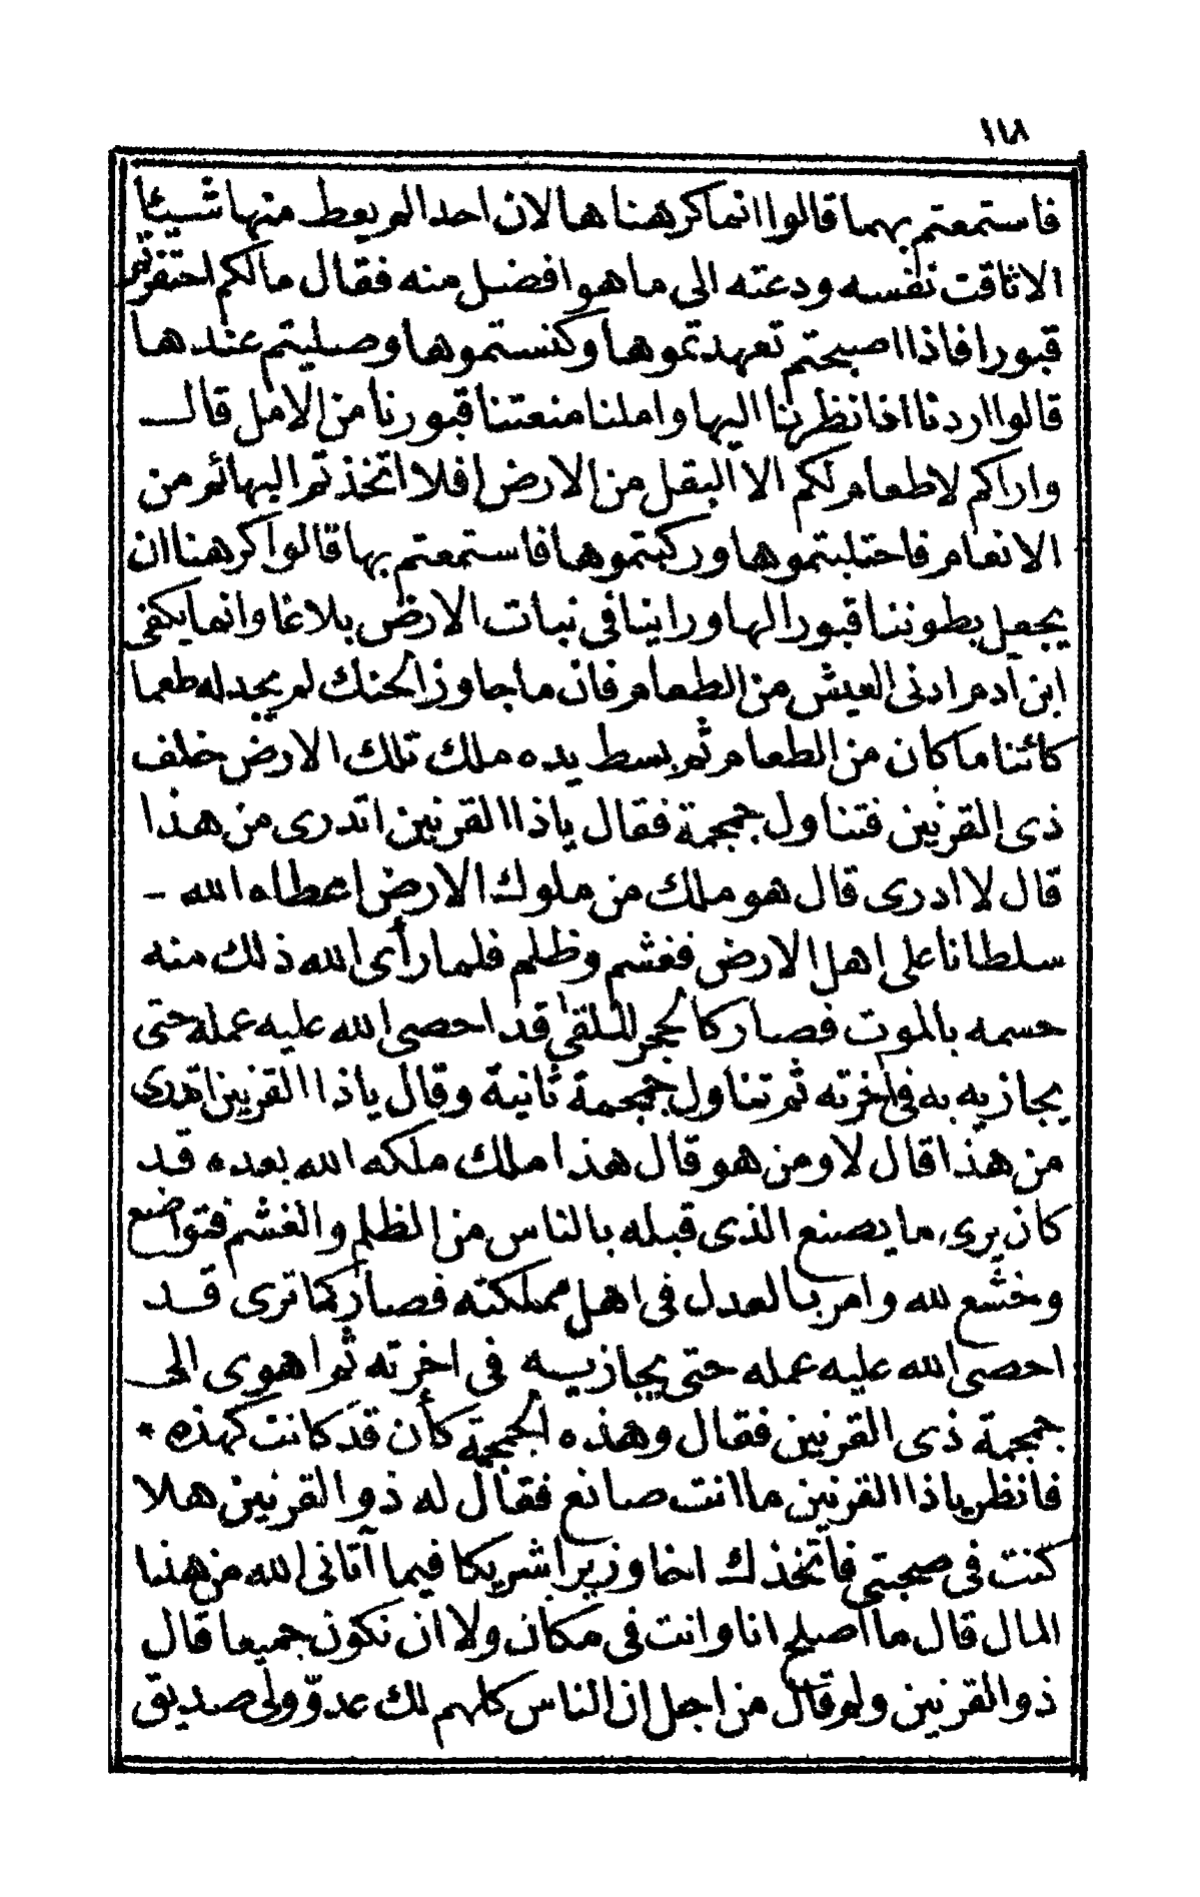 ١١٨
فاستمعتم بهما قالوا انما كرهناها لان احدا لم يعط منها شيئا
الا تاقت نفسه ودعته الى ما هو افضل منه فقال مالكم احتفرتم
قبورا فاذا اصبحتم تعهدتموها وكنستموها وصليتم عندها
قالوا اردنا اذا نظرنا اليها واملنا منعتنا قبورنا من الامل قال
واراكم لا طعام لكم الا البقل من الارض افلا اتخذتم البهائم من
الانعام فاحتلبتموها وركبتموها فاستمعتم بها قالوا كرهنا ان
يجعل بطوننا قبورا لها وراينا فى نبات الارض بلاغا وانما يكفى
ابن آدم ادنى العيش من الطعام فان ما جاوز الحنك لم يجد له طعما
كائنا ما كان من الطعام ثم بسط يده ملك تلك الارض خلف
ذى القرنين فتناول جمجمة فقال ياذا القرنين اتدرى من هذا
قال لا ادرى قال هو ملك من ملوك الارض اعطاه الله -
سلطانا على اهل الارض فغشم وظلم فلما رأى الله ذلك منه
حسمه بالموت فصار كالحجر الملقى قد احصى الله عليه عمله حتى
يجازيه به فى اخرته ثم تناول جمجمة ثانية وقال ياذا القرنين اتدرى
من هذا قال لا ومن هو قال هذا ملك ملكه الله بعده قد
كان يرى ما يصنع الذى قبله بالناس من الظلم والغشم فتواضع
وخشع لله وامر بالعدل فى اهل مملكته فصار كما ترى قد
احصى الله عليه عمله حتى يجازيه فى اخرته ثم اهوى الى
جمجمة ذى القرنين فقال وهذه الجمجمة كأن قد كانت كهذه *
فانظر ياذا القرنين ما انت صانع فقال له ذو القرنين هلا
كنت فى صحبتى فاتخذك اخا وزيرا شريكا فيما آتانى الله من هذا
المال قال ما اصلح انا وانت فى مكان ولا ان نكون جميعا قال
ذو القرنين ولم قال من اجل ان الناس كلهم لك عدوّ ولى صديق